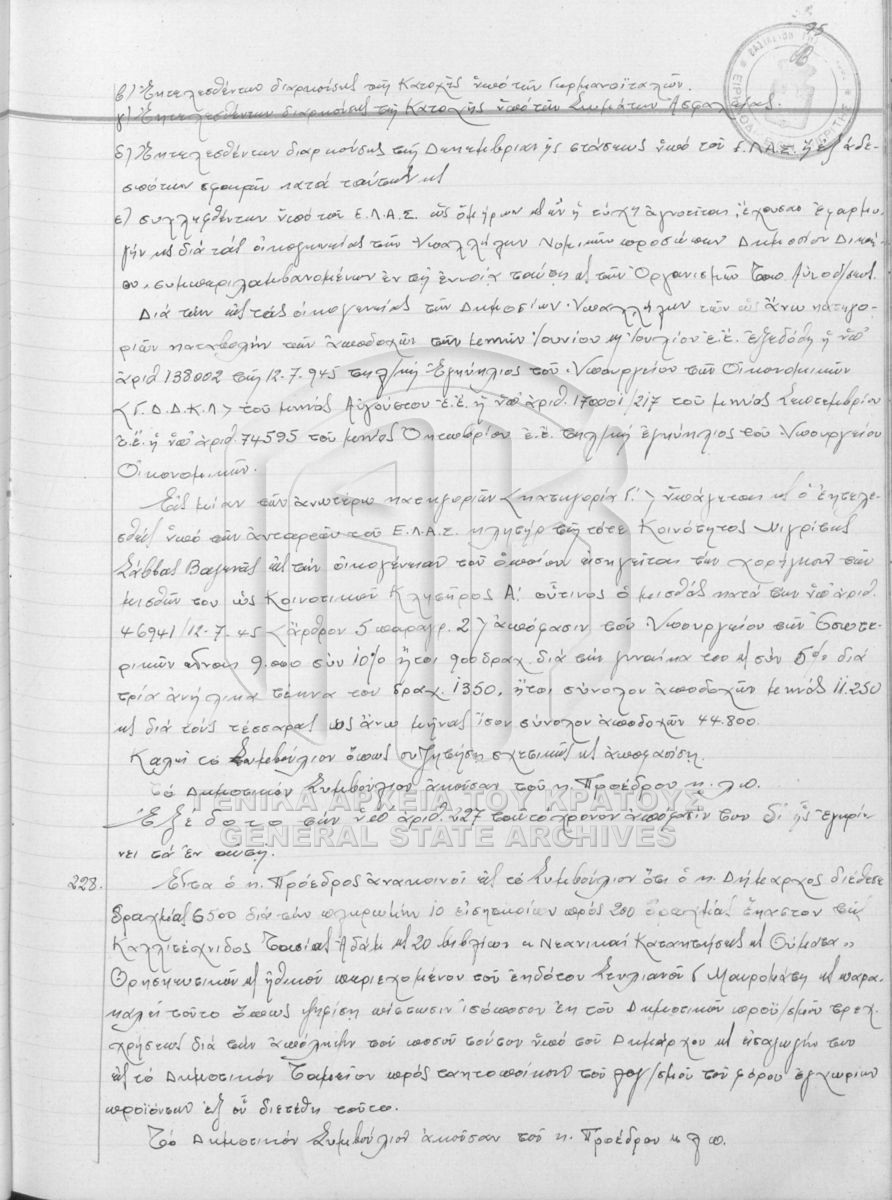 95
β) Ἐκτελεσθέντων διαρκούσης τῆς Κατοχῆς ὑπό τῶν Γερμανοϊταλῶν.
γ) Ἐκτελεσθέντων διαρκούσης τῆς Κατοχῆς ὑπό τῶν Σωμάτων Ἀσφαλείας.
δ) Ἐκτελεσθέντων διαρκούσης τῆς Δεκεμβριανῆς στάσεως ὑπό τοῦ Ε.Λ.Α.Σ. ἤ ἐξ ἀδε-
σπότων σφαιρῶν κατά ταύτην κ
ε) συλληφθέντων ὑπό τοῦ Ε.Λ.Α.Σ. ὡς ὁμήρων κ ὧν ἡ τύχη ἀγνοεῖται, ἔχουσαι ἐφαρμο-
γήν κ διά τάς οἰκογενείας τῶν Ὑπαλλήλων Νομικῶν προσώπων Δημοσίου Δικαί-
ου, συμπεριλαμβανομένων ἐν τῇ ἐννοίᾳ ταύτῃ κ τῶν Ὀργανισμῶν Τοπ. Αὐτοδ/σεως.
Διά τήν εἰς τάς οἰκογενείας τῶν Δημοσίων Ὑπαλλήλων τῶν ὡς ἄνω κατηγο-
ριῶν καταβολήν τῶν ἀποδοχῶν τῶν μηνῶν Ἰουνίου κ Ἰουλίου ἐ.ἔ. ἐξεδόθη ἡ ὑπ'
ἀριθ. 138002 τῆς 12.7.945 τηλ/κή Ἐγκύκλιος τοῦ Ὑπουργείου τῶν Οἰκονομικῶν
<Γ.Δ.Δ.Κ.Λ> τοῦ μηνός Αὐγούστου ἐ.ἔ. ἡ ὑπ' ἀριθ. 170001/217 τοῦ μηνός Σεπτεμβρίου
ἐ.ἔ. ἡ ὑπ' ἀριθ. 74595 τοῦ μηνός Ὀκτωβρίου ἐ.ἔ. τηλ/κή ἐγκύκλιος τοῦ Ὑπουργείου
Οἰκονομικῶν.
Εἰς μίαν τῶν ἀνωτέρω κατηγοριῶν <κατηγορία Γ.> ὑπάγεται κ ὁ ἐκτελε-
σθείς ὑπό τῶν ἀνταρτῶν τοῦ Ε.Λ.Α.Σ. κλητήρ τῆς τότε Κοινότητος Νιγρίτης
Σάββας Βαγενᾶς εἰς τήν οἰκογένειαν τοῦ ὁποίου εἰσηγεῖται τήν χορήγησιν τῶν
μισθῶν του ὡς Κοινοτικοῦ Κλητῆρος Α! οὗτινος ὁ μισθός κατά τήν ὑπ' ἀριθ.
46941/12.7.45 <ἄρθρον 5 παραγρ. 2> ἀπόφασιν τοῦ Ὑπουργείου τῶν Ἐσωτε-
ρικῶν εἶναι 9.000 σύν 10% ἤτοι 900 δραχ. διά τήν γυναίκα του κ σύν 5% διά
τρία ἀνήλικα τέκνα του δραχ. 1350, ἤτοι σύνολον ἀποδοχῶν μηνός 11.250
κ διά τούς τέσσαρας ὡς ἄνω μῆνας ἴσον σύνολον ἀποδοχῶν 44.800.
Καλεῖ τό Συμβούλιον ὅπως συζητήσῃ σχετικῶς κ ἀποφασίσῃ.
Τό Δημοτικόν Συμβούλιον ἀκοῦσαν τοῦ κ. Προέδρου κ.λ.π.
Ἐξέδοτο τήν ὑπ' ἀριθ. 227 ταυτόχρονον ἀπόφασίν του δι' ἧς ἐγκρί-
νει τά ἐν αὐτῇ.
228. Εἶτα ὁ κ. Πρόεδρος ἀνακοινοῖ εἰς τό Συμβούλιον ὅτι ὁ κ. Δήμαρχος διέθεσε
δραχμάς 6500 διά τήν πληρωμήν 10 εἰσητηρίων πρός 200 δραχμάς ἕκαστον τῆς
Καλλιτέχνιδος Τασίας Ἀδάμ κ 20 βιβλίων « Νεανικαί Κατακτήσεις κ Θύματα»
Θρησκευτικοῦ κ ἠθικοῦ περιεχομένου τοῦ ἐκδότου Στυλιανοῦ Γ Μαυρομάτη κ παρα-
καλεῖ τοῦτο ὅπως ψηφίσῃ πίστωσιν ἰσόποσον ἐκ τοῦ Δημοτικοῦ προϋ/σμοῦ τρεχ.
χρήσεως διά τήν ἀπόληψιν τοῦ ποσοῦ τούτου ὑπό τοῦ Δημάρχου κ εἰσαγωγήν του
εἰς τό Δημοτικόν Ταμεῖον πρός τακτοποίησιν τοῦ λογ/σμοῦ τοῦ φόρου ἐγχωρίων
προϊόντων ἐξ οὗ διετέθη τοῦτο.
Τό Δημοτικόν Συμβούλιον ἀκοῦσαν τοῦ κ. Προέδρου κ λ π.
ΓΕΝΙΚΑ ΑΡΧΕΙΑ ΤΟΥ ΚΡΑΤΟΥΣ
GENERAL STATE ARCHIVES